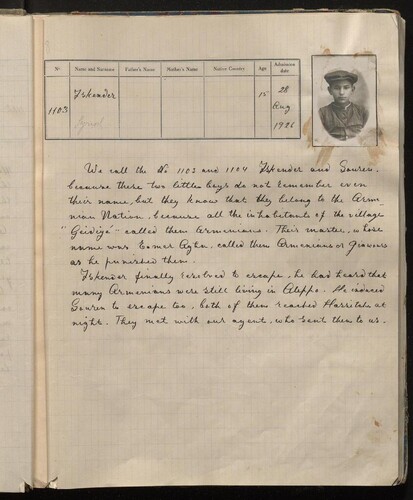 No Name and Surname Father's Name Mother's Name Native Country Age Admission date
1103 Iskender 15 28 Aug 1926
We call the No 1103 and 1104 Iskender and Souren,
because these two little boys do not remember even
their name, but they know that they belong to the Arme-
nian Nation, because all the inhabitants of the village
called them armenians. Their master, whose
name was Eomer Agha, called them Armenians or giavours
as he punished them.
Iskender finally resolved to escape, he had heard that
many Armenians were still living in Aleppo. He induced
Souren to escape too, both of them reached Harritan at
night. They met with our agent, who sent them to us.